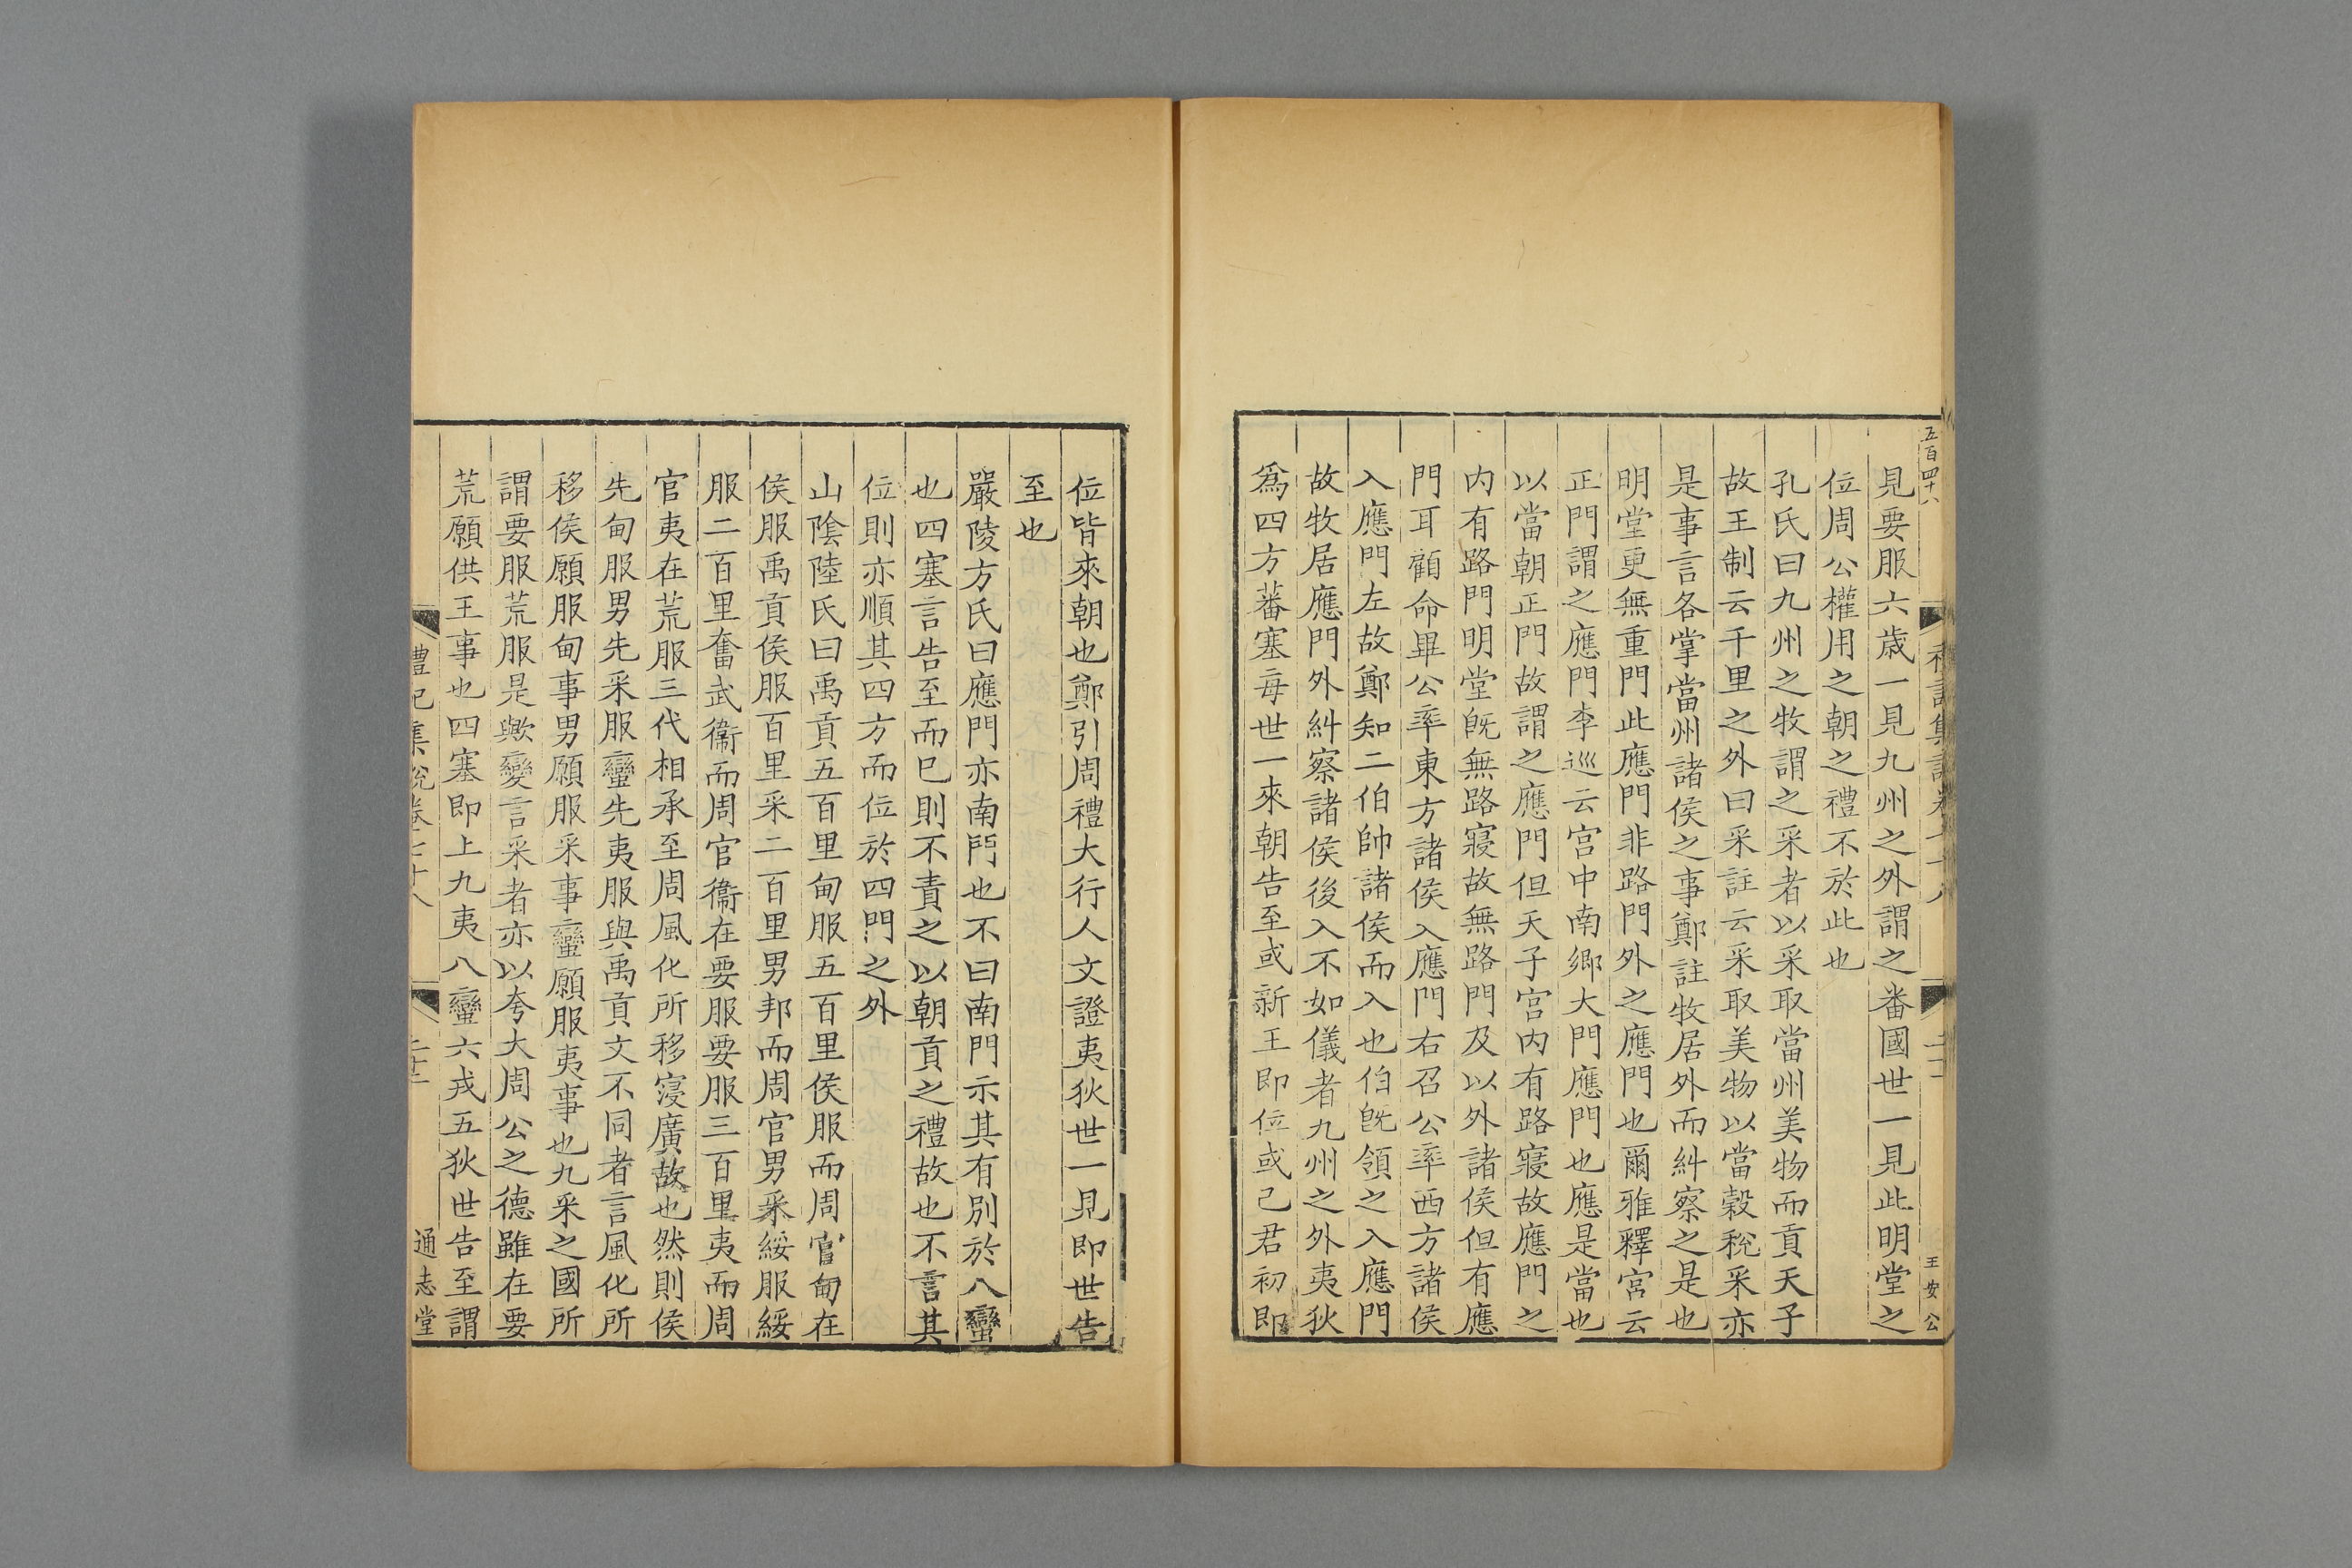 五百四十八
王安公
見要服六歲一見九州之外謂之番國世一見此明堂之
位周公權用之朝之禮不於此也
孔氏曰九州之牧謂之采者以采取當州美物而貢天子
故王制云千里之外曰采註云采取美物以當穀稅采亦
是事言各掌當州諸侯之事鄭註牧居外而糾察之是也
明堂更無重門此應門非路門外之應門也爾雅釋宮云
正門謂之應門李巡云宮中南鄉大門應門也應是當也
以當朝正門故謂之應門但天子宮內有路寢故應門之
內有路門明堂旣無路寢故無路門及以外諸侯但有應
門耳顧命畢公率東方諸侯入應門右召公率西方諸侯
入應門左故鄭知二伯帥諸侯而入也伯旣領之入應門
故牧居應門外糾察諸侯後入不如儀者九州之外夷狄
爲四方蕃塞每世一來朝告至或新王即位或己君初即
位皆來朝也鄭引周禮大行人文證夷狄世一見即世告
至也
嚴陵方氏曰應門亦南門也不曰南門示其有別於八蠻
也四塞言告至而已則不責之以朝貢之禮故也不言其
位則亦順其四方而位於四門之外
山陰陸氏曰禹貢五百里甸服五百里侯服而周官甸在
侯服禹貢侯服百里采二百里男邦而周官男采綏服綏
服二百里奮武衞而周官衞在要服要服三百里夷而周
官夷在荒服三代相承至周風化所移寖廣故也然則侯
先甸服男先采服蠻先夷服與禹貢文不同者言風化所
移侯願服甸事男願服采事蠻願服夷事也九采之國所
謂要服荒服是歟變言采者亦以夸大周公之德雖在要
荒願供王事也四塞即上九夷八蠻六戎五狄世告至謂
禮記集說卷七十八
通志堂